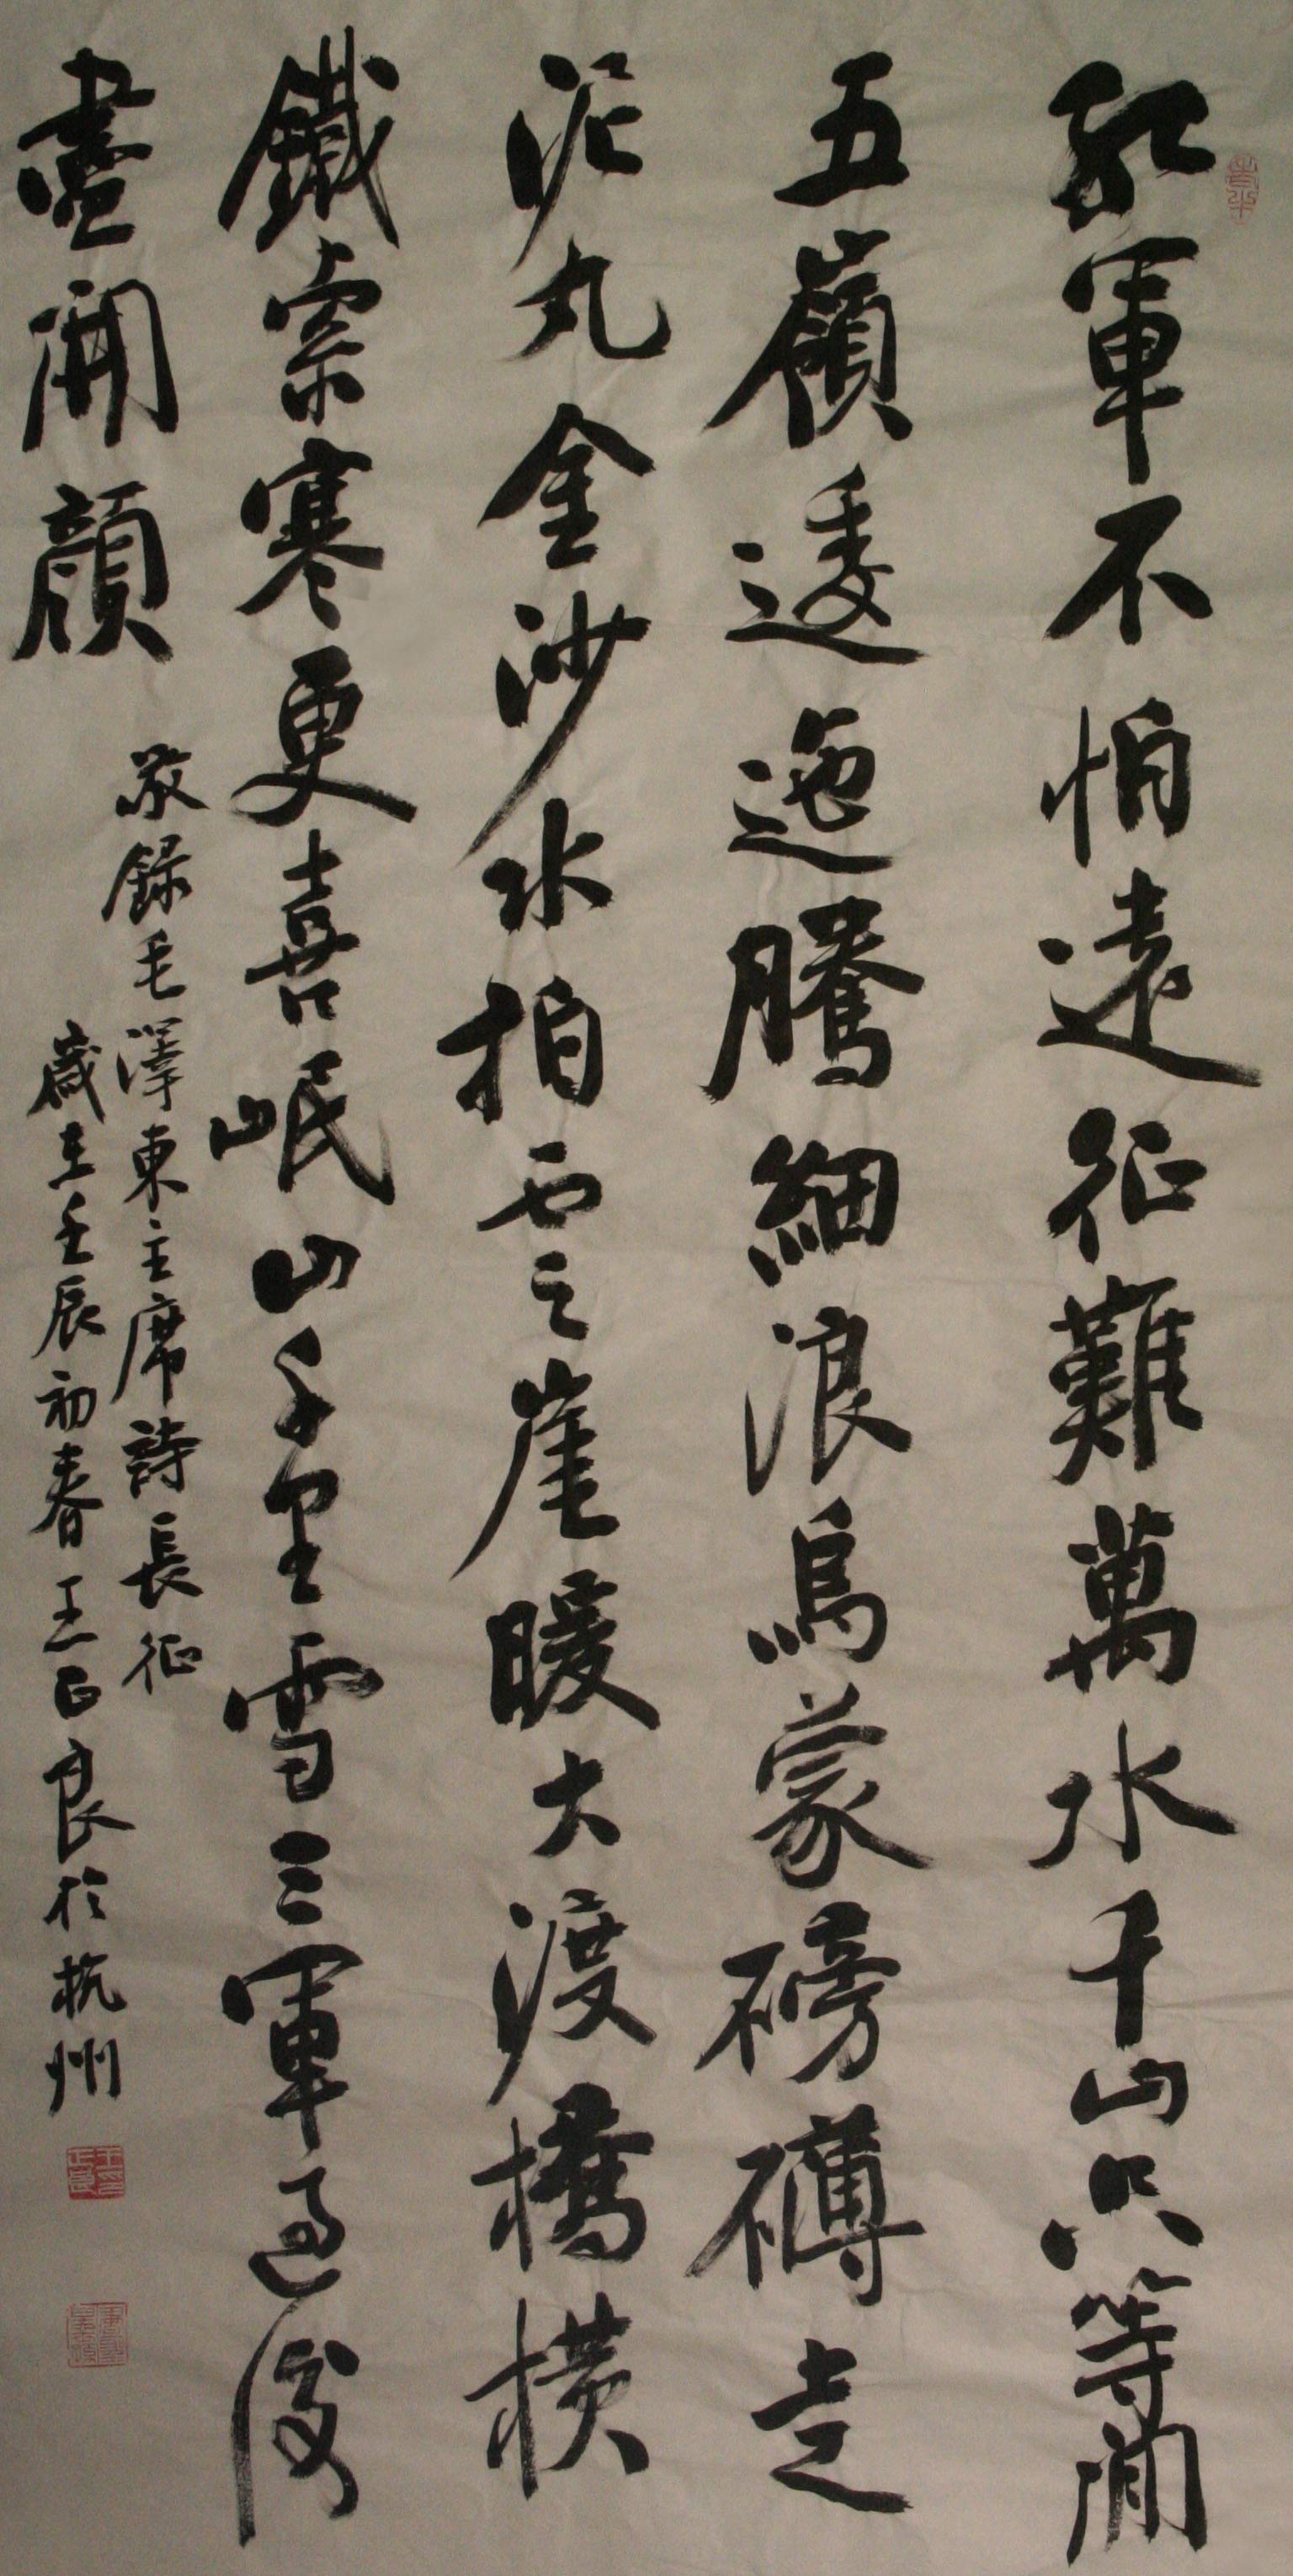 紅軍不怕遠征難萬水千山只等閒
五嶺逶迤騰細浪烏蒙磅礡走
泥丸金沙水拍雲崖暖大渡橋橫
鐵索寒更喜岷山千里雪三軍過後
盡開顏
敬錄毛澤東主席詩長征
歲在壬辰初春王正良於杭州